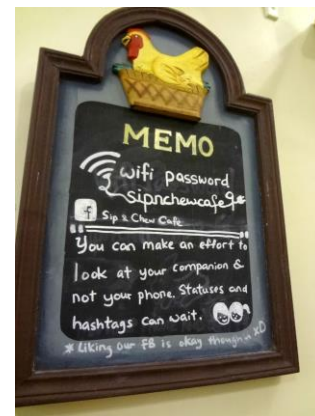 MEMO
wifi password
sipnchewcafe
f Sip & Chew Cafe
You can make an effort to
look at your companion &
not your phone. Statuses and
hashtags can wait.
* Liking our FB is okay though xD